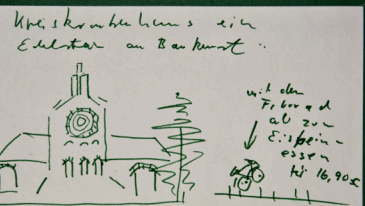 Kreiskrankenhaus ein
Edelstein an Baukunst..
mit dem
Fahrrad
ab zum
Eisbein-
essen
für 16,90€